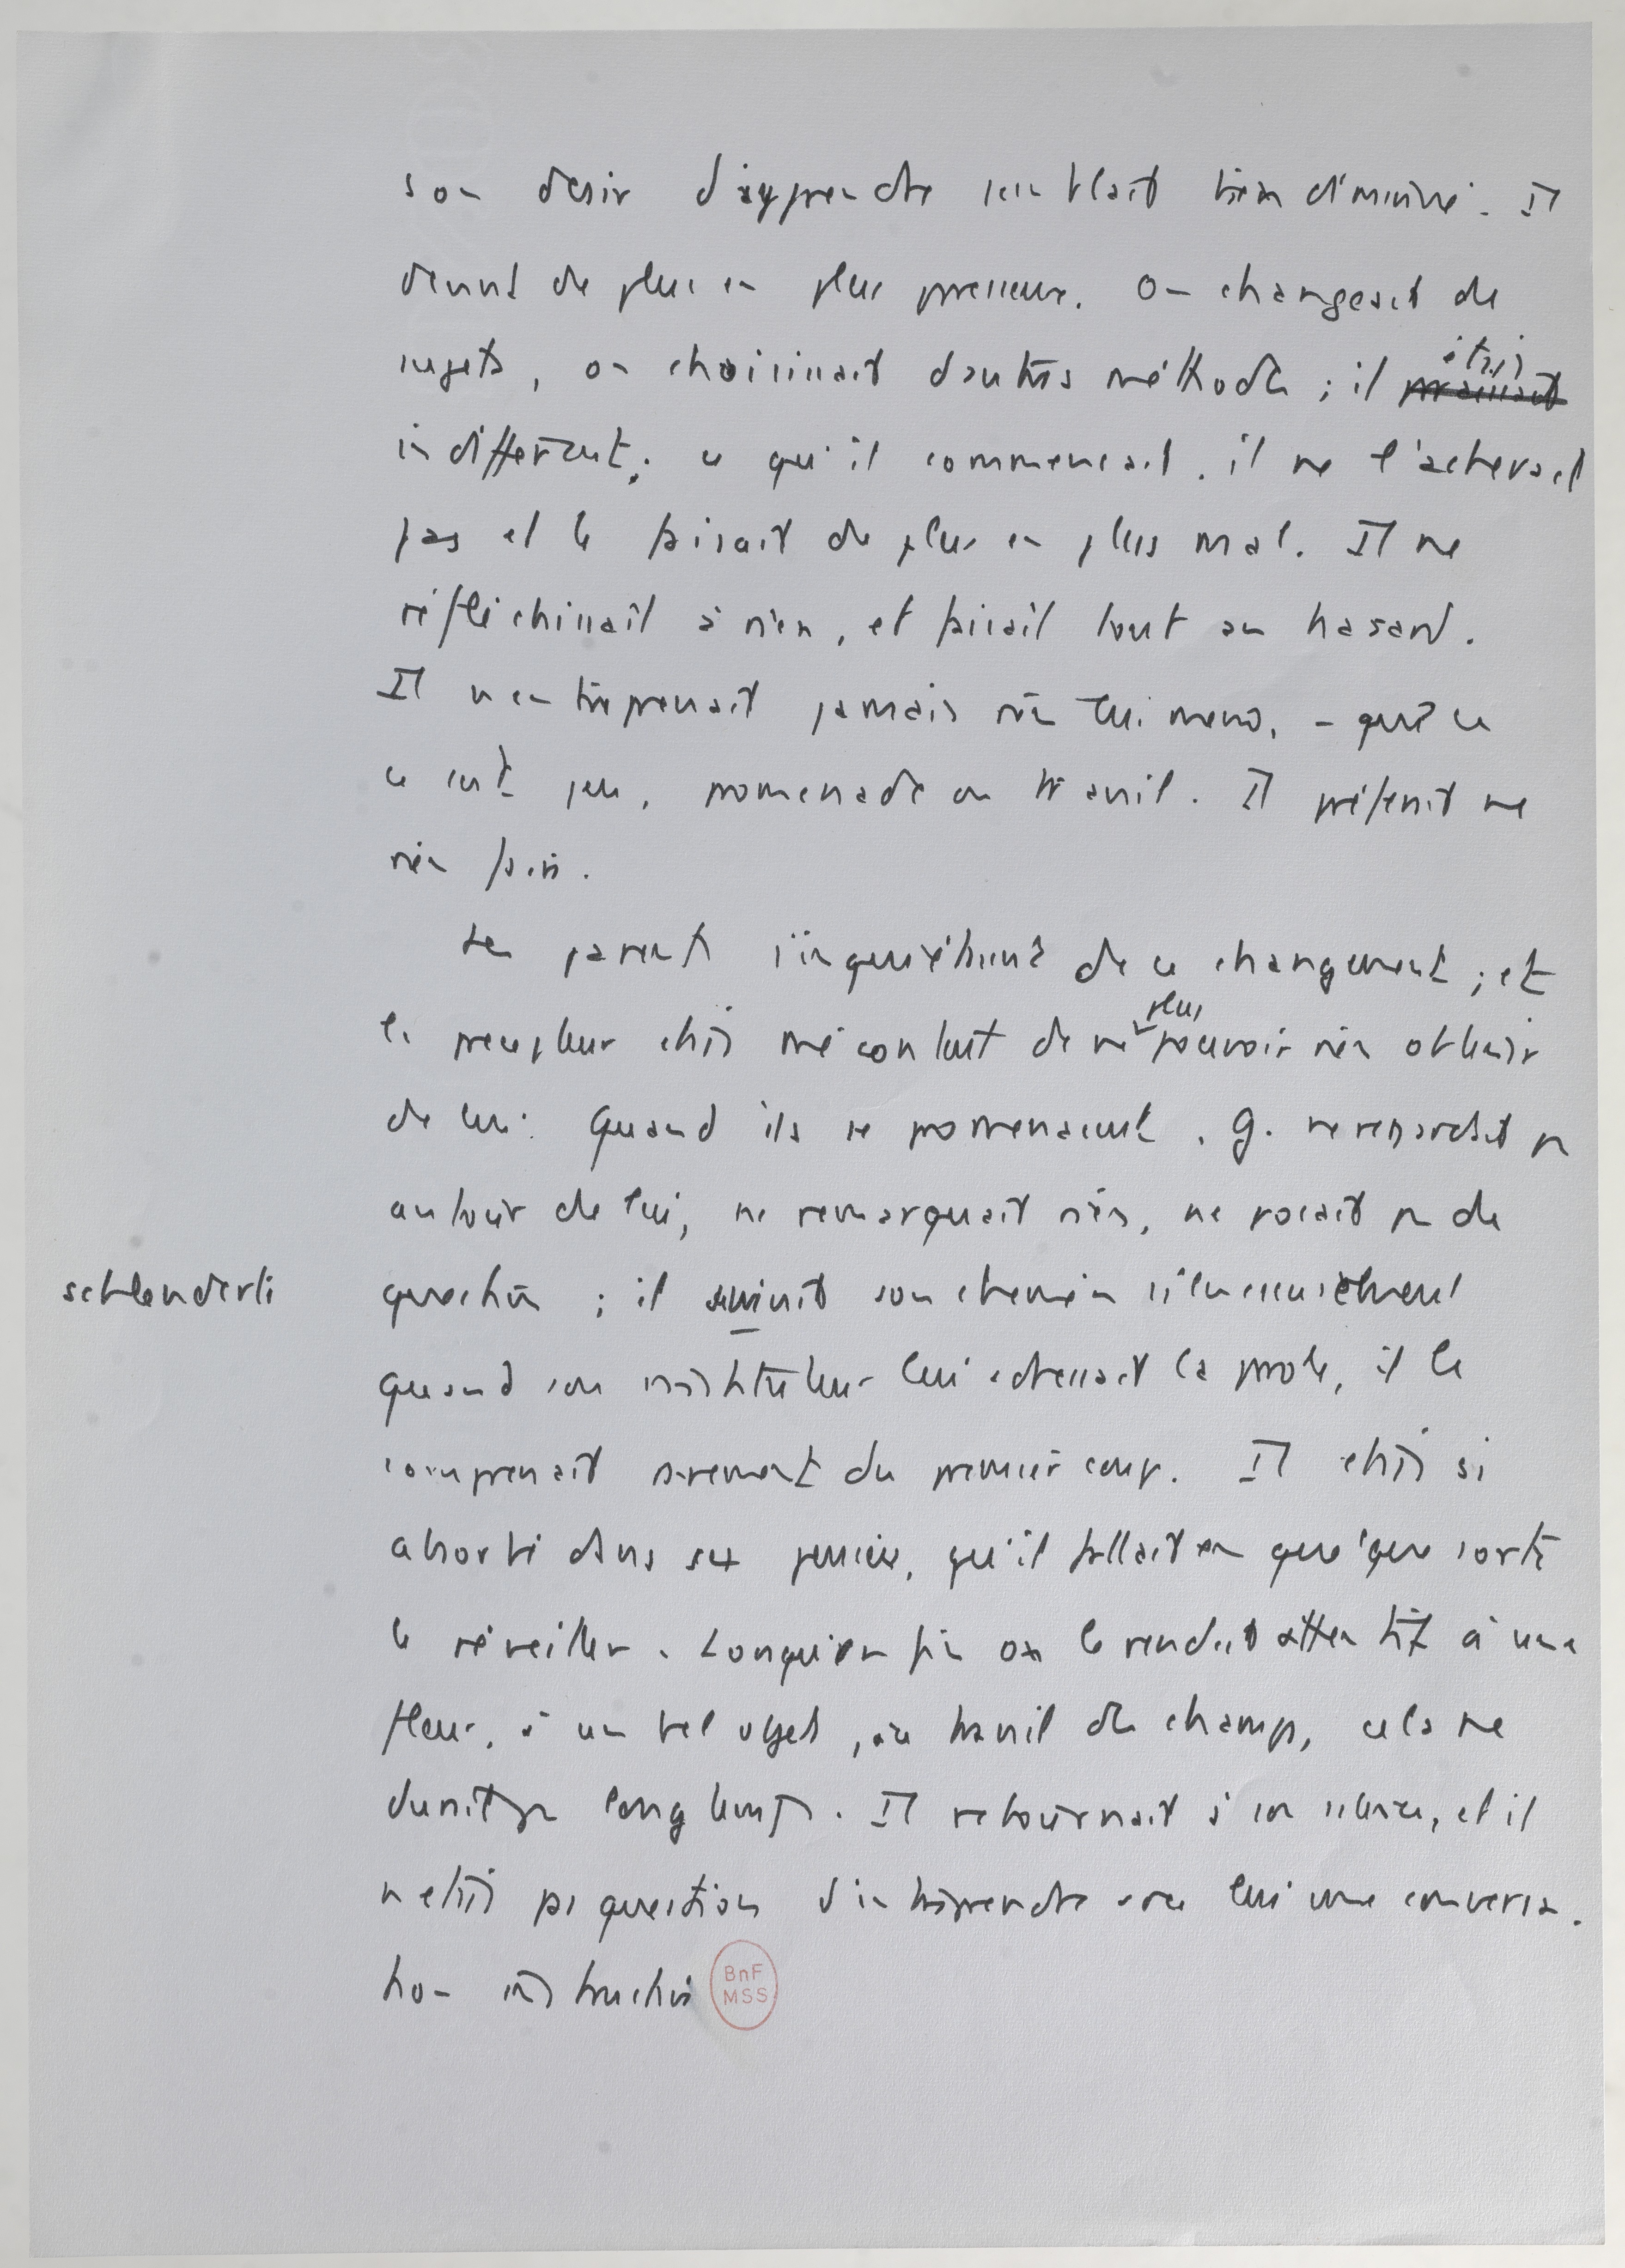 son désir d'apprendre semblait bien diminué. Il
devint de plus en plus paresseux. On changeait de
sujets, on choisissait d'autres méthodes ; il était
indifférent ; ce qu'il commençait, il ne l'achevait
pas et le faisait de plus en plus mal. Il ne
réfléchissait à rien, et faisait tout au hasard.
Il n'entreprenait jamais rien lui même, - que ce
ce soit jeu, promenade ou travail. Il préférait ne
rien faire.
Les parents s'inquiétèrent de ce changement ; et
le précepteur était mécontent de ne plus pouvoir rien obtenir
de lui. Quand ils se promenaient, G. ne regardait pas
autour de lui, ne remarquait rien, ne posait pas de
schlenderte
question ; il suivait son chemin silencieusement
quand son instituteur lui adressait la parole, il le
comprenait rarement du premier coup. Il était si
absorbé dans ses pensées, qu'il fallait en quelque sorte
le réveiller. Lorsqu'enfin on le rendait attentif à une
fleur, à un bel objet, au travail des champs, cela ne
durait pas longtemps. Il retournait à son silence, et il
n'était pas question d'entreprendre avec lui une conversa-
tion instructive
BnF
MSS